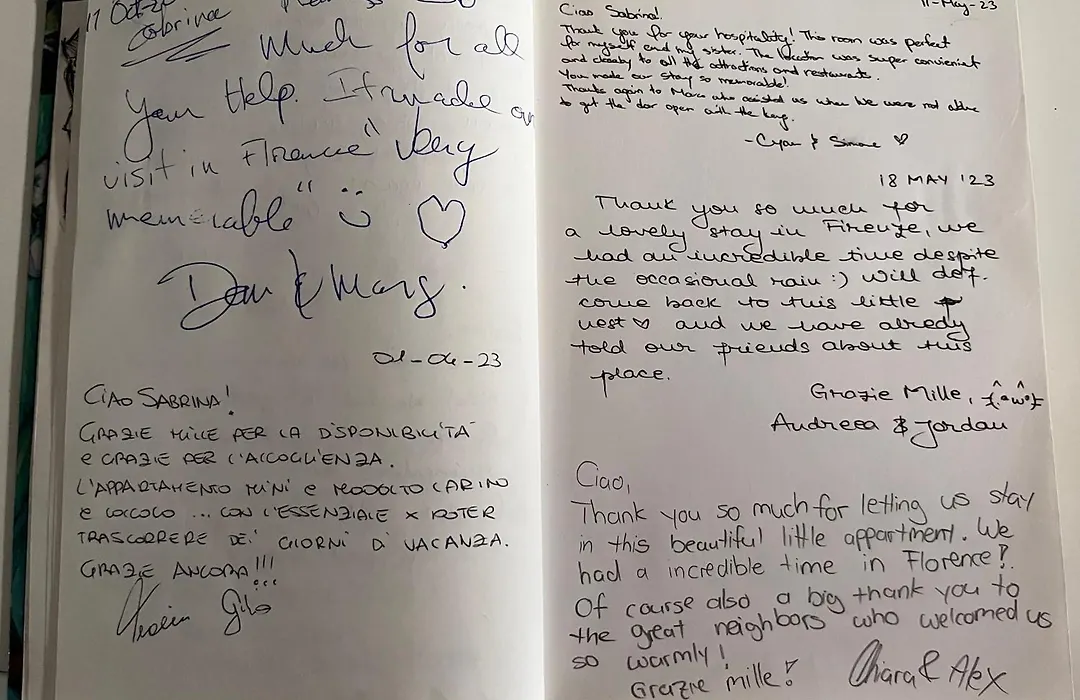 17 Oct-2
Sabrina
Much for all
Your Help. It made ou
visit in Florence "Very
memorable" :)
Dan & Marg.
01-04-23
CIAO SABRINA!
GRAZIE MILLE PER LA DISPONIBILITA'
E GRAZIE PER L'ACCOGLIENZA.
L'APPARTAMENTO MINI E MODOLTO CARINO
E COCCOLO ... CON L'ESSENZIALE X POTER
TRASCORRERE DEI GIORNI DI VACANZA.
GRAZIE ANCORA!!! ...
11-May-23
Ciao Sabrina!
Thank you for your hospitality! This room was perfect
for myself and my sister. The location was super convienient
and closeby to all the attractions and restaurants.
You made our stay so memorable!
Thanks again to Marco who assisted us when we were not able
to get the door open with the key.
- & Simone ♡
18 MAY '23
Thank you so much for
a lovely stay in Firenze, we
had an incredible time despite
the occasional rain :) Will def.
come back to this little
nest ♡ and we have alredy
told our friends about this
place.
Grazie Mille,
Andreea & Jordan
Ciao,
Thank you so much for letting us stay
in this beautiful little appartment. We
had a incredible time in Florence!
Of course also a big thank you to
the great neighbors who welcomed us
so warmly!
Grazie mille! Chiara & Alex